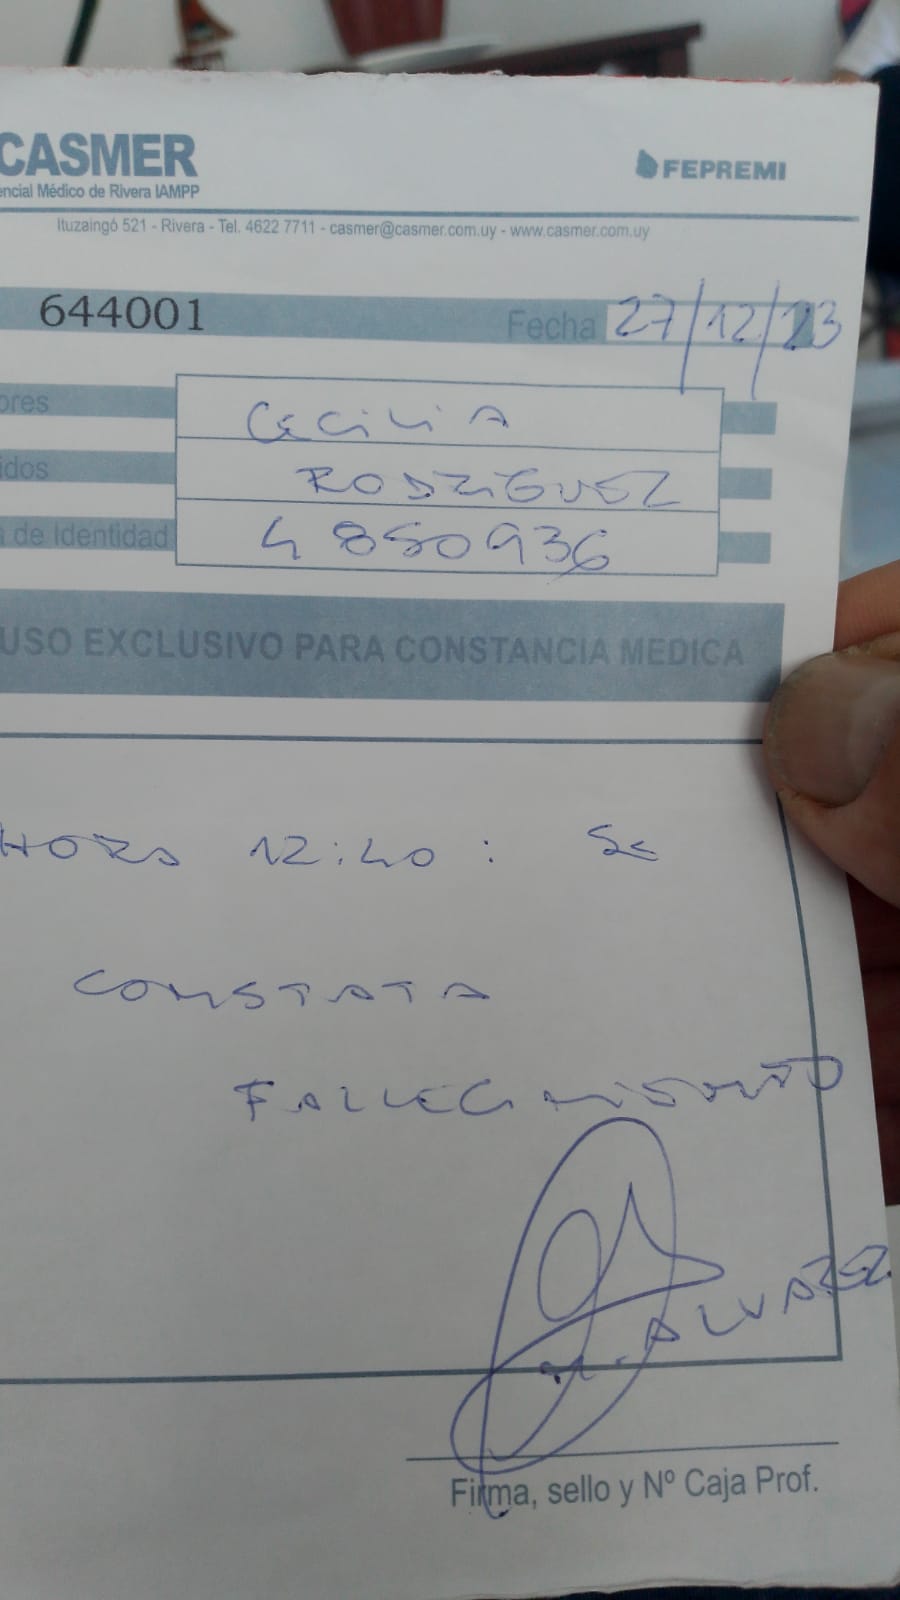 CASMER
encial Médico de Rivera IAMPP
FEPREMI
Ituzaingó 521 - Rivera - Tel. 4622 7711 - casmer@casmer.com.uy - www.casmer.com.uy
644001
Fecha 27/12/23
ores CECILIA
idos RODRIGUEZ
a de Identidad 4850936
USO EXCLUSIVO PARA CONSTANCIA MEDICA
HORA 12:40 : SE
CONSTATA
FALLECIMIENTO
ALVAREZ
Firma, sello y Nº Caja Prof.